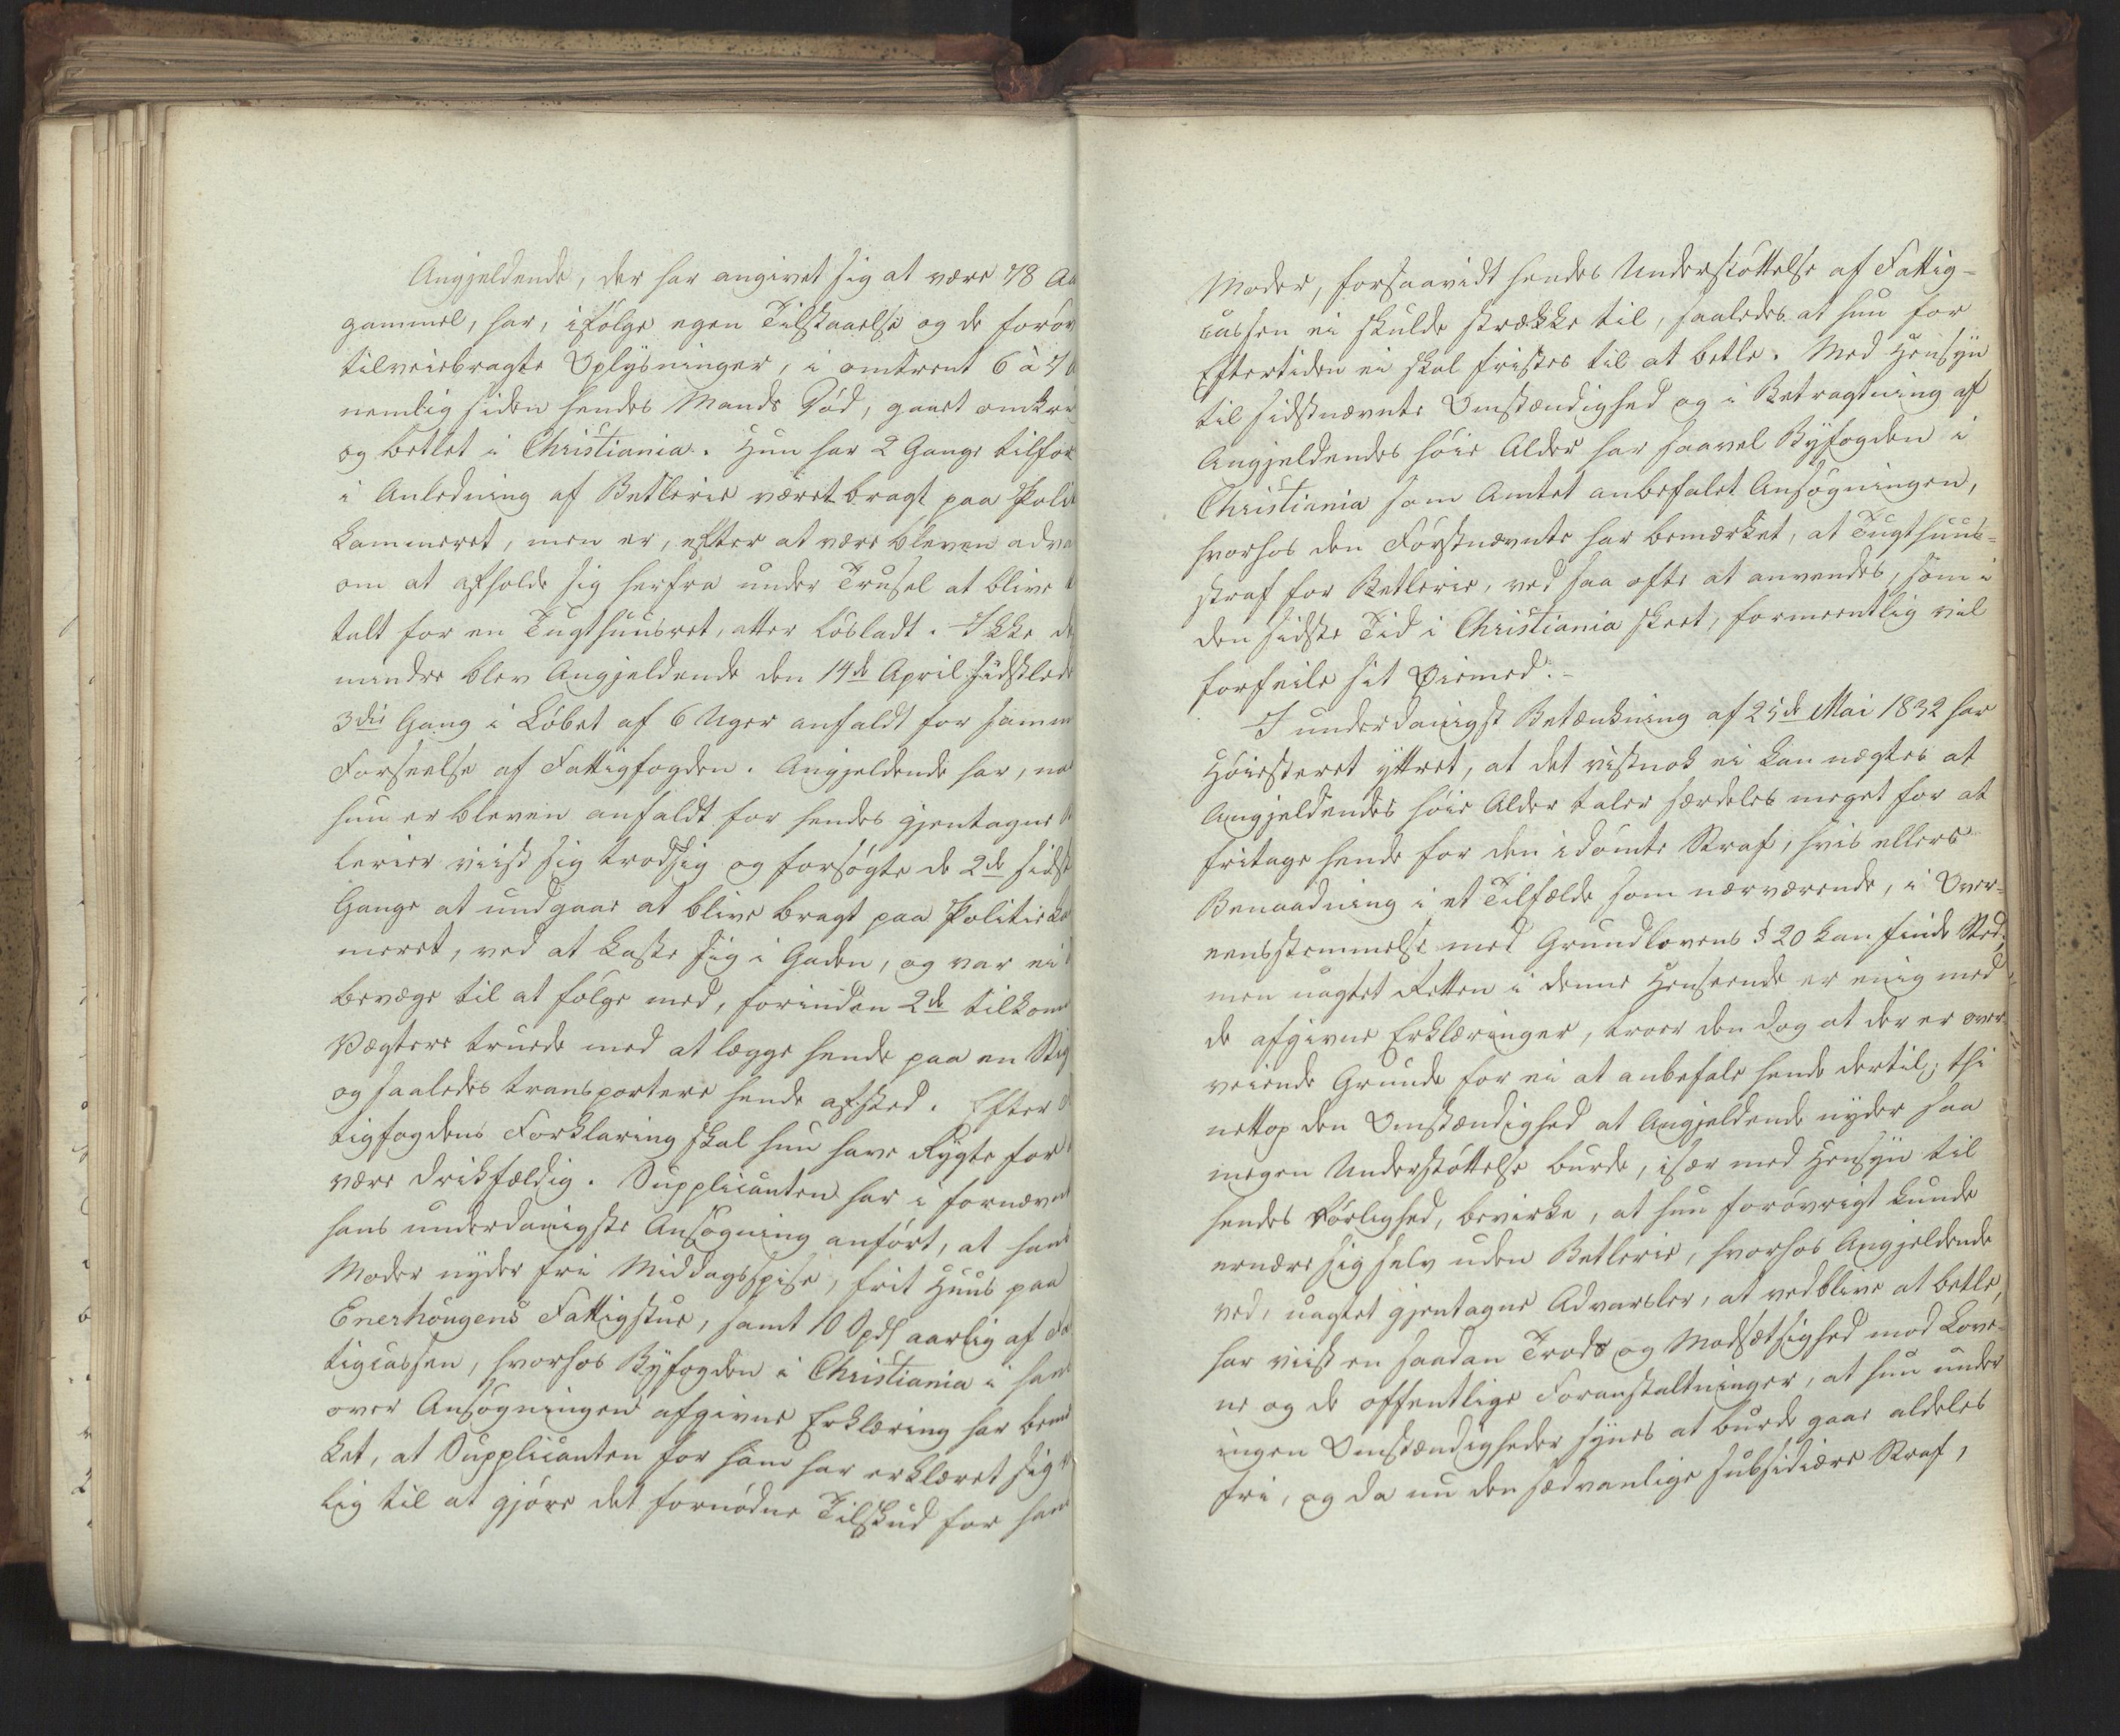 Angjeldende, der har angivet sig at være 78 Aa
gammel, har, ifølge egen Tilstaaelse og de forøv
tilveiebragte Oplysninger, i omtrent 6 à 7
nemlig siden hendes Mands Død, gaaet omkri
og betlet i Christiania. Hun har 2 Gange tilfor
i Anledning af Betlerie været bragt paa Polit
kammeret, men er, efter at være bleven adva
om at afholde sig herfra under Trusel at blive t
talt for en Tugthuusret, atter løsladt. Ikke de
mindre blev Angjeldende den 14de April sidstled
3die Gang i Løbet af 6 Uger anholdt for samm
Forseelse af Fattigfogden. Angjeldende har, na
hun er bleven anholdt for hendes gjentagne B
lerier viist sig trodsig og forsøgte de 2de sidst
Gange at undgaae at blive bragt paa Politieka
meret, ved at kaste sig i Gaden, og var ei t
bevæge til at følge med, forinden 2de tilkom
Vægtere truede med at lægge hende paa en Stig
og saaledes transportere hende afsted. Efter
tigfogdens Forklaring skal hun have Rygte for
være drikfældig. Supplicanten har i fornævn
hans underdanigste Ansøgning anført, at hans
Moder nyder fri Middagsspise, frit Huus paa
Enerhougens Fattigstue, samt 10 Spd aarlig af Fa
tigcassen, hvorhos Byfogden i Christiania i han
over Ansøgningen afgivne Erklæring har bem
ket, at Supplicanten for ham har erklæret sig
lig til at gjøre det fornødne Tilskud for hans
Moder, forsaavidt hendes Understøttelse af Fattig-
cassen ei skulde strække til, saaledes at hun for
Eftertiden ei skal fristes til at betle. Med Hensyn
til sidstnævnte Omstændighed og i Betragtning af
Angjeldendes høie Alder har saavel Byfogden i
Christiania som Amtet anbefalet Ansøgningen,
hvorhos den Førstnævnte har bemærket, at Tugthuus-
straf for Betlerie, ved saa ofte at anvendes, som i
den sidste Tid i Christiania skeet, formeentlig vil
forfeile sit Øiemed.-
I underdanigst Betænkning af 25de Mai 1832 har
Høiesteret yttret, at det vistnok ei kan nægtes at
Angjeldendes høie Alder taler særdeles meget for at
fritage hende for den idømte Straf, hvis ellers
Benaadning i et Tilfælde som nærværende, i Over-
eensstemmelse med Grundlovens § 20 kan finde Sted;
men uagtet Retten i denne Henseende er enig med
de afgivne Erklæringer, troer den dog at der er over-
veiende Grunde for ei at anbefale hende dertil; thi
nettop den Omstændighed at Angjeldende nyder saa
megen Understøttelse burde, især med Hensyn til
hendes Førlighed, bevirke, at hun forøvrigt kunde
ernære sig selv uden Betlerie, hvorhos Angjeldende
ved, uagtet gjentagne Advarsler, at vedblive at betle,
har viist en saadan Trods og Modsætlighed mod Love-
ne og de offentlige Foranstaltninger, at hun under
ingen Omstændigheder synes at burde gaae aldeles
fri, og da nu den sædvanlige subsidiære Straf,